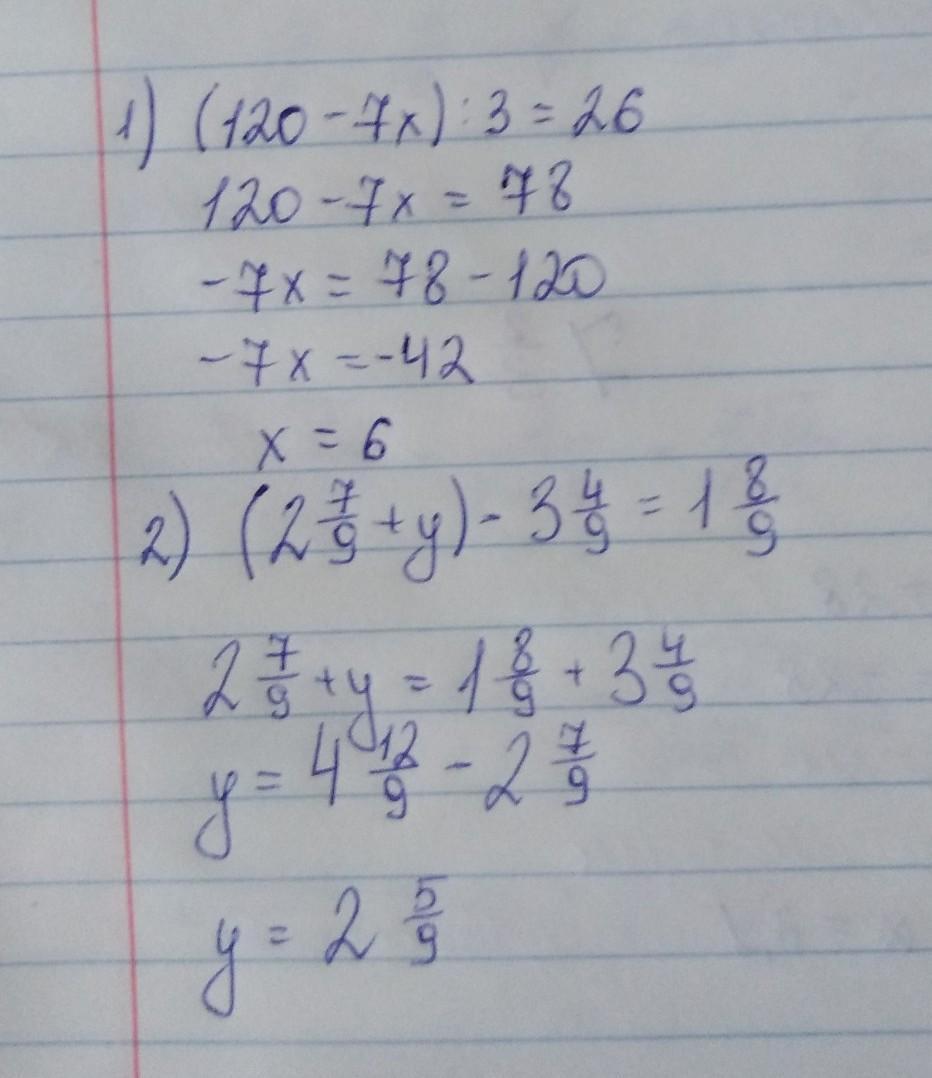 1) (120 - 7x) : 3 = 26
120 - 7x = 78
-7x = 78 - 120
-7x = -42
x = 6
2) (2 7/9 + y) - 3 4/9 = 1 8/9
2 7/9 + y = 1 8/9 + 3 4/9
y = 4 12/9 - 2 7/9
y = 2 5/9